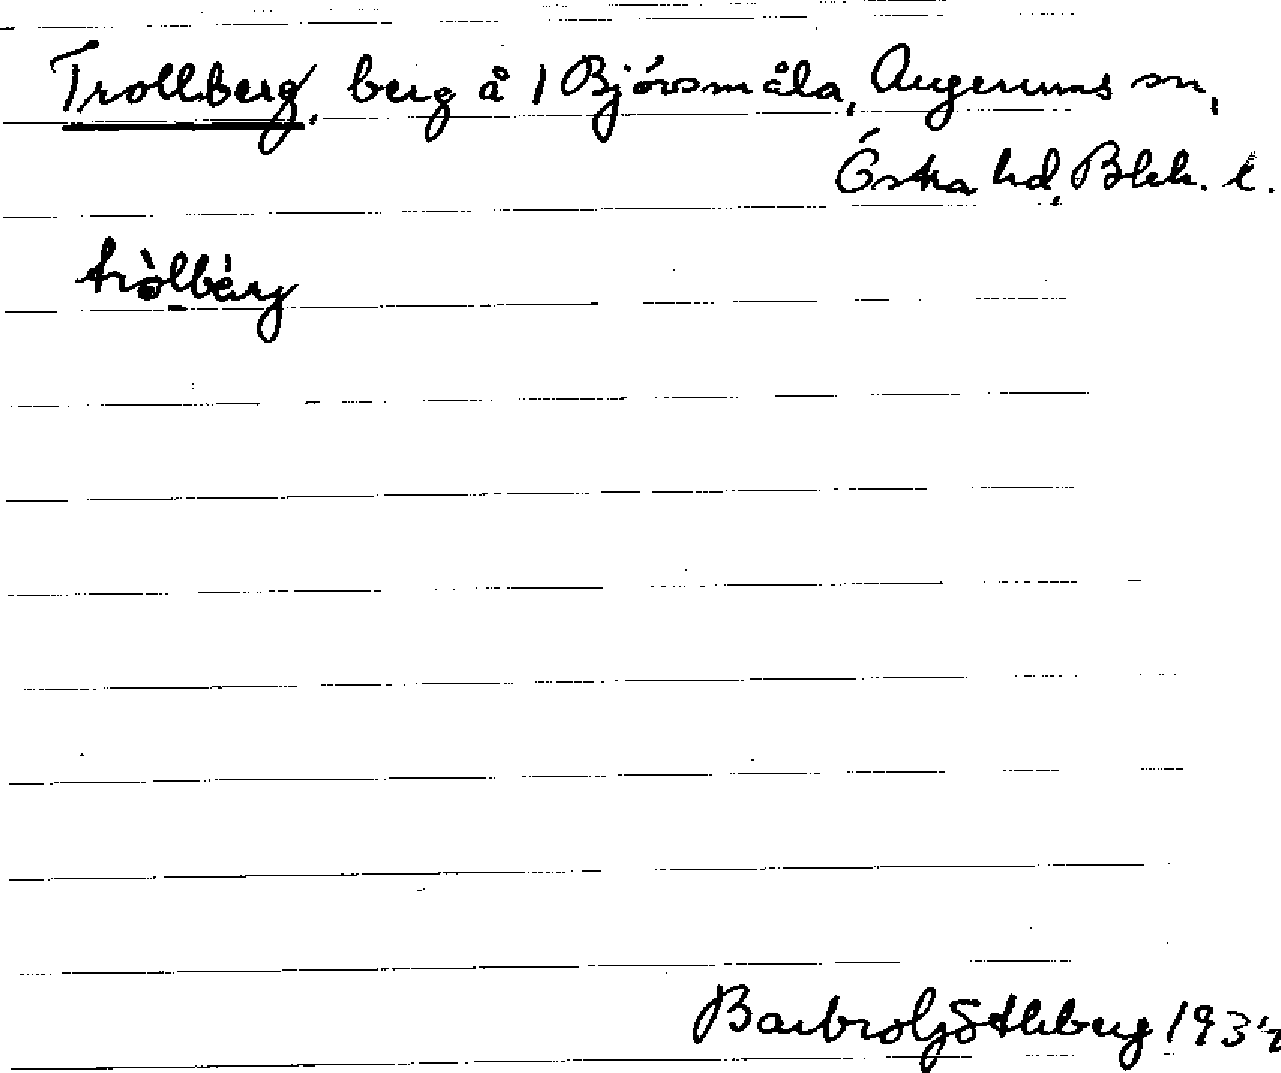 Trollberg, berg å 1 Björsmåla, Augerums sn,
Östra hd, Blek. l.
tròlbárg
Barbro Göthberg 1934